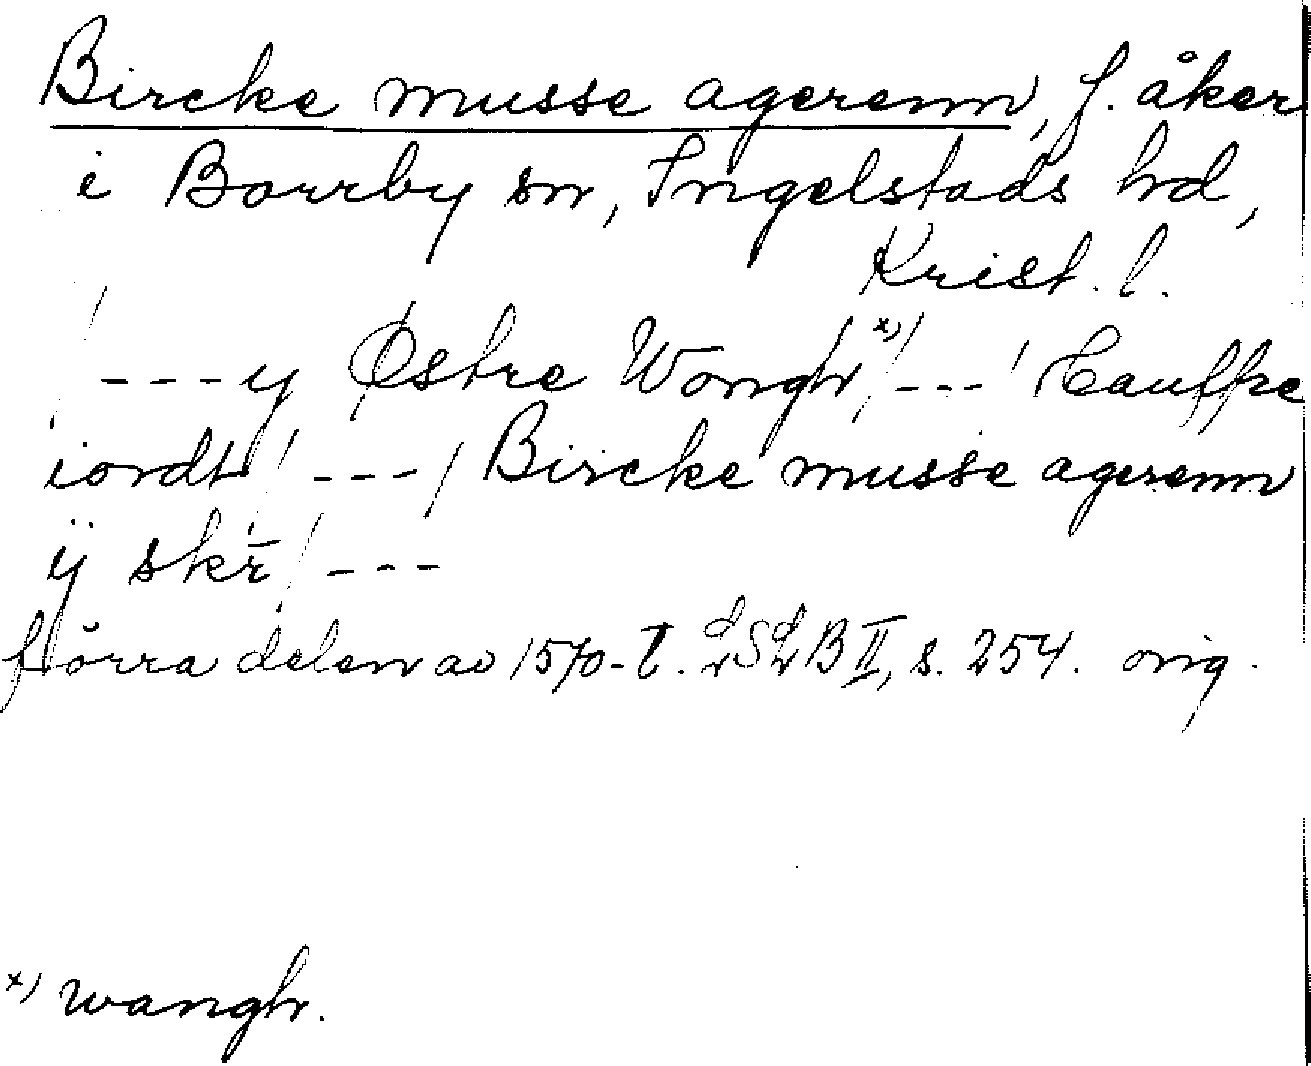 Bircke musse agerenn, f. åker
i Borrby sn, Ingelstads hd,
Krist. l.
/---y Østre Wongh x)/---/ Hauffue
iordt/ /---/ Bircke musse agerenn
ÿ skr̄/---
förra delen av 1570-t. LSLB II, s. 254. orig.
x) wangh.